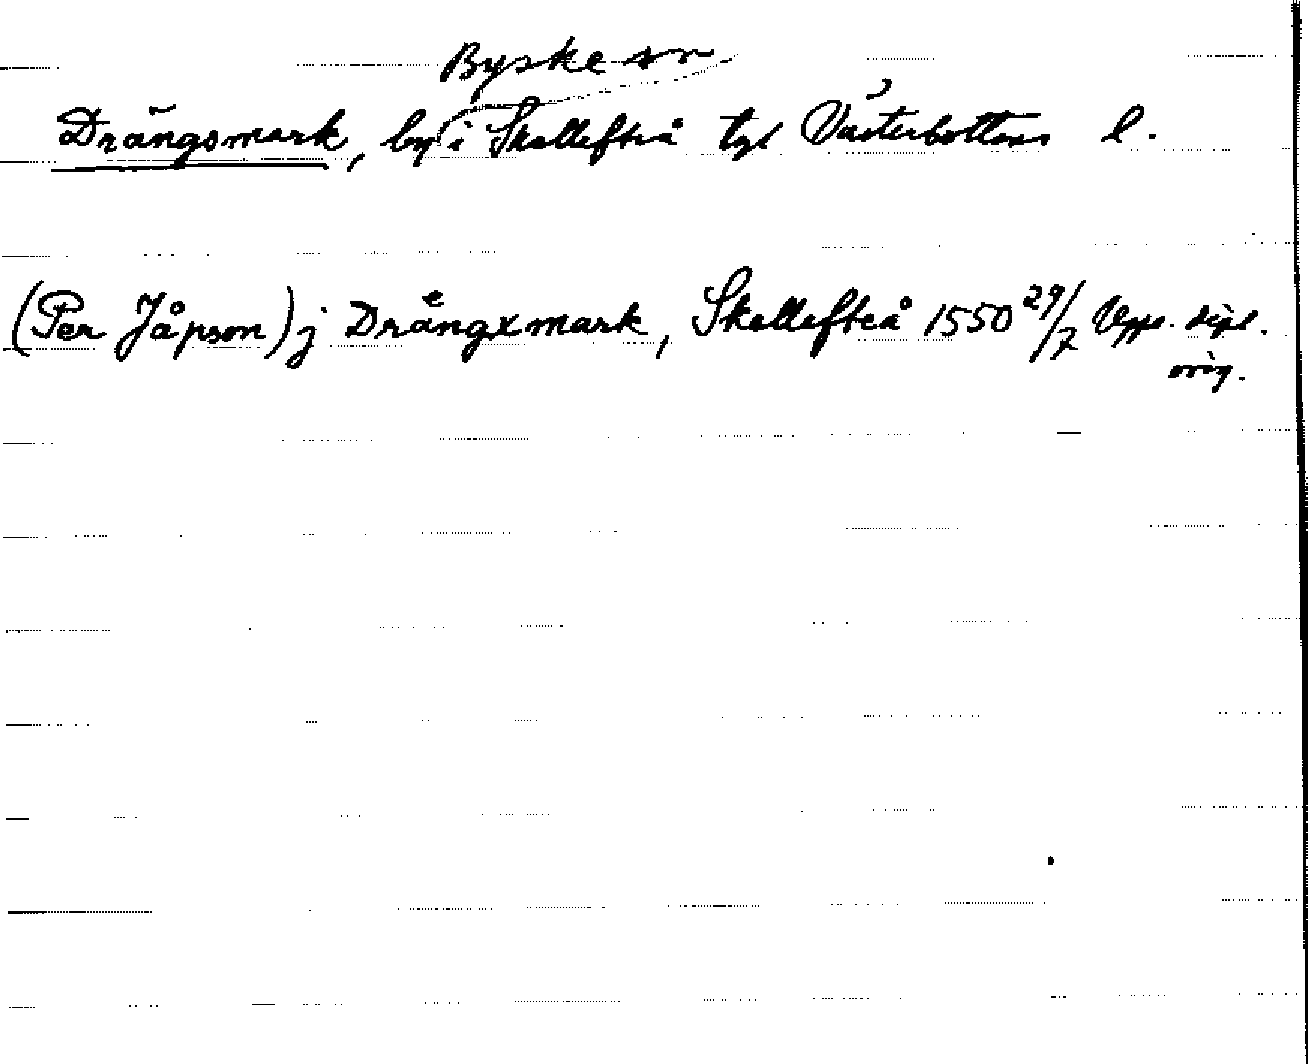 Byske sn
Drängsmark, by i Skellefteå tgl Västerbottens l.
(Per Jåpson) j Drångxmark, Skellefteå 1550 29/7 Upps. dipl.
orig.